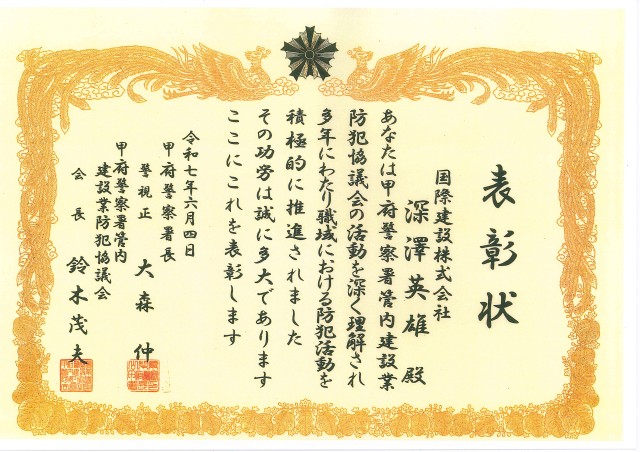 表彰状
国際建設株式会社
深澤英雄 殿
あなたは甲府警察署管内建設業
防犯協議会の活動を深く理解され
多年にわたり職域における防犯活動を
積極的に推進されました
その功労は誠に多大であります
ここにこれを表彰します
令和七年六月四日
甲府警察署長
警視正 大森 仲
甲府警察署管内
建設業防犯協議会
会長 鈴木茂夫